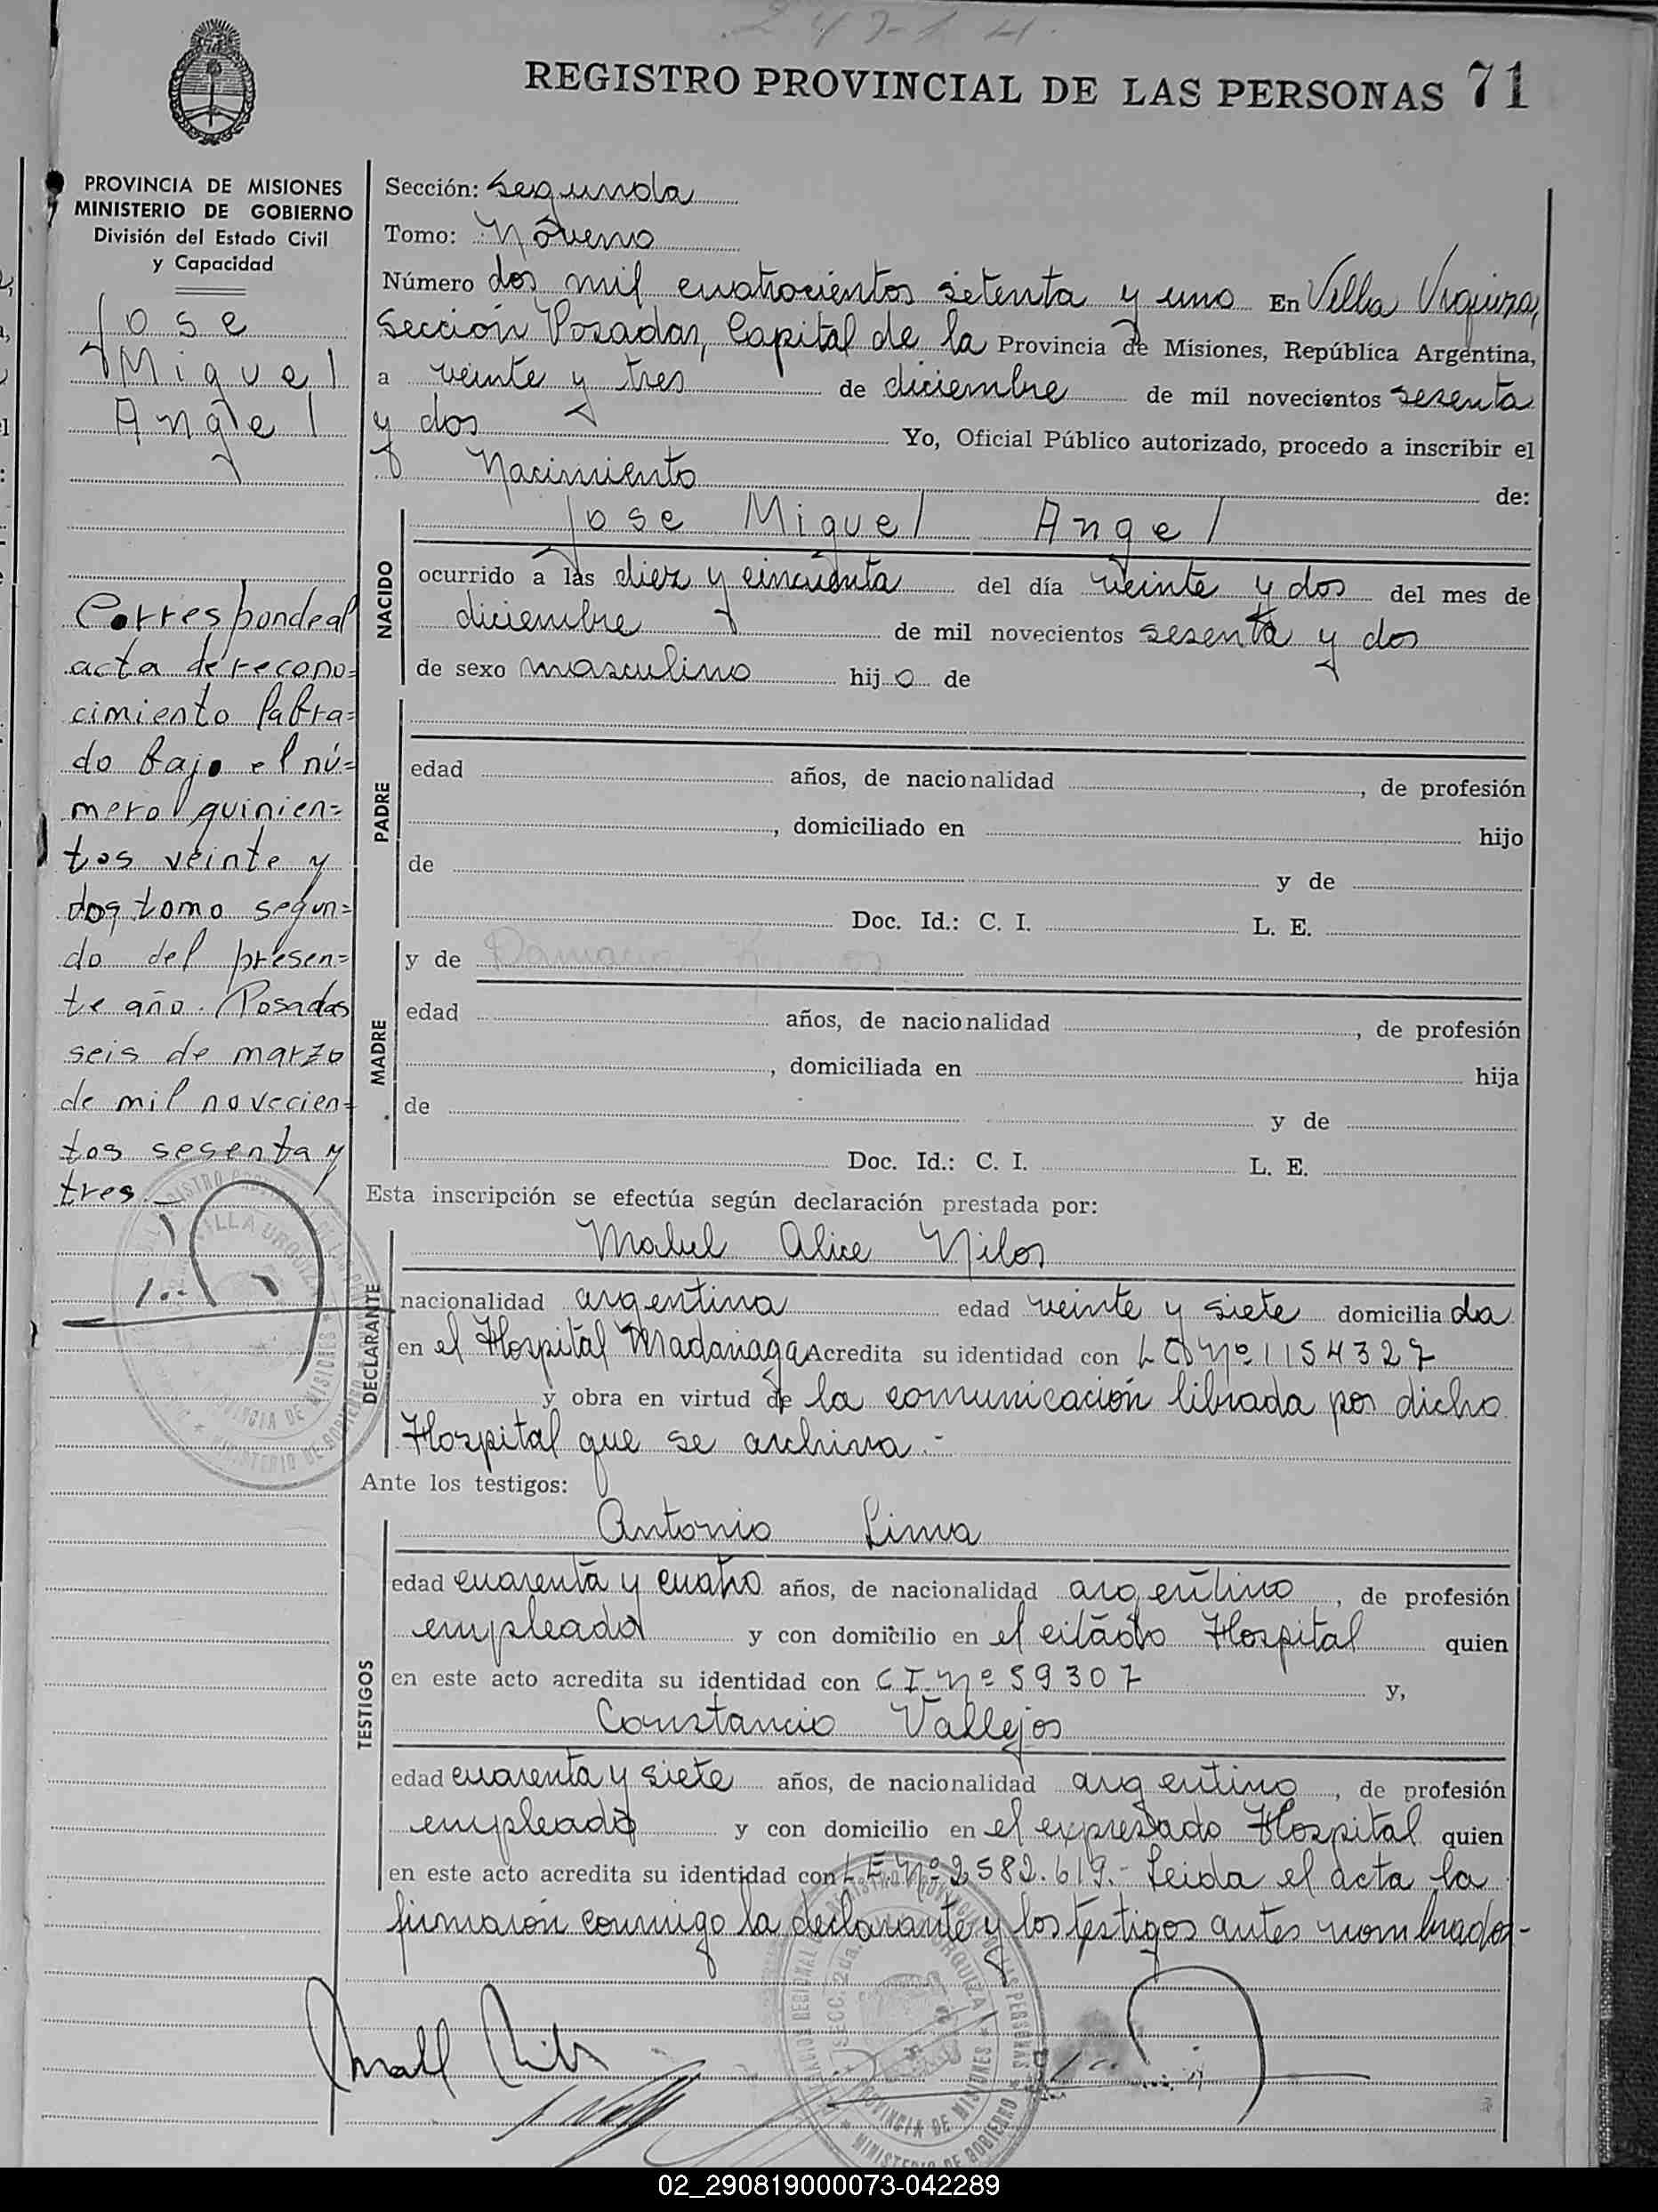 REGISTRO PROVINCIAL DE LAS PERSONAS 71
PROVINCIA DE MISIONES
MINISTERIO DE GOBIERNO
División del Estado Civil
y Capacidad
Jose
Miguel
Angel
Corresponde al
acta de recono=
cimiento labra=
do bajo el nú=
mero quinien=
tos veinte y
dos, tomo segun=
do del presen=
te año. Posadas
seis de marzo
de mil novecien=
tos sesenta y
tres.—
Sección: Segunda
Tomo: Noveno
Número dos mil cuatrocientos setenta y uno En Villa Urquiza,
Sección Posadas, Capital de la Provincia de Misiones, República Argentina,
a veinte y tres de diciembre de mil novecientos sesenta
y dos Yo, Oficial Público autorizado, procedo a inscribir el
Nacimiento de:
NACIDO
Jose Miguel Angel
ocurrido a las diez y cincuenta del día veinte y dos del mes de
diciembre de mil novecientos sesenta y dos
de sexo masculino hijo de
PADRE
edad años, de nacionalidad , de profesión
, domiciliado en hijo
de y de
Doc. Id.: C. I. L. E.
MADRE
y de
edad años, de nacionalidad , de profesión
, domiciliada en hija
de y de
Doc. Id.: C. I. L. E.
Esta inscripción se efectúa según declaración prestada por:
DECLARANTE
Mabel Alice Nilos
nacionalidad argentina edad veinte y siete domiciliada
en el Hospital Madariaga Acredita su identidad con L C Nº 1154327
y obra en virtud de la comunicación librada por dicho
Hospital que se archiva.-
Ante los testigos:
TESTIGOS
Antonio Lima
edad cuarenta y cuatro años, de nacionalidad argentino, de profesión
empleado y con domicilio en el citado Hospital quien
en este acto acredita su identidad con C I. Nº 59307 y,
Constancio Vallejos
edad cuarenta y siete años, de nacionalidad argentino, de profesión
empleado y con domicilio en el expresado Hospital quien
en este acto acredita su identidad con L E Nº 2582.619.- Leida el acta la
firmarón conmigo la declarante y los testigos antes nombrados-
02_290819000073-042289